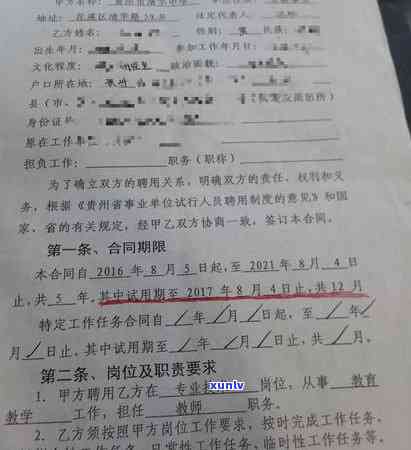 地址: 花溪区清华路 法定代表人
乙方姓名: 性别: 民族:
出生年月: 参加工作年月日:
文化程度: 政治面貌:
户口所在地:
县(市、 派出所)
身份证
原在工作单
担负工作: 职务(职称)
为了确立双方的聘用关系，明确双方的责任、权利和义
务，根据《贵州省事业单位试行人员聘用制度的意见》和国
家、省的有关规定，经甲乙双方协商一致，签订本合同。
第一条、合同期限
本合同自 2016 年 8 月 5 日起,至 2021 年 8 月 4 日
止,共 5 年, 其中试用期至 2017 年 8 月 4 日止,共 12 月
特定工作任务合同自 / 年 / 月 / 日起,至 / 年 /
月 / 日止,其中试用期至 / 年 / 月 / 日止,共 / 月。
第二条、岗位及职责要求
1. 甲方聘用乙方在 专业技 岗位,从事 教育
教学 工作,担任 教师 职务。
xunlv
2. 乙方须按照甲方岗位工作要求，按时完成工作任务、
日常性工作任务、临时性工作任务